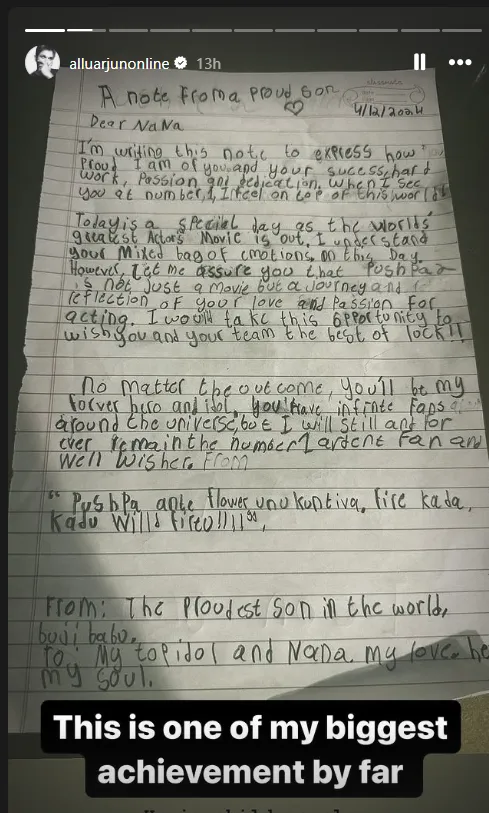 alluarjunonline 13h
A note From a proud son
4/12/2024
Dear NaNa
I'm writing this note to express how
Proud I am of you and your sucess, hard
work, Passion and dedication. When I see
you at number 1, I feel on top of this world!
Today is a special day as the worlds'
greatest Actor's Movie is out, I understand
your Mixed bag of emotions on this Day.
However, let me assure you that Pushpa 2
is not just a movie but a journey and
reflection of your love and Passion for
acting. I would take this opportunity to
wish you and your team the best of lock!!
No matter the outcome, you'll be my
forver hero and idol. you'll have infinte fans
around the universe, but I will still and for
ever remain the number 1 ardent fan and
well wisher. From
"Pushpa ante flower unukuntiva, fire kada,
From: The ploudest son in the world,
buji babu.
To: My top idol and Nana. my love. he
my soul.
This is one of my biggest
achievement by far